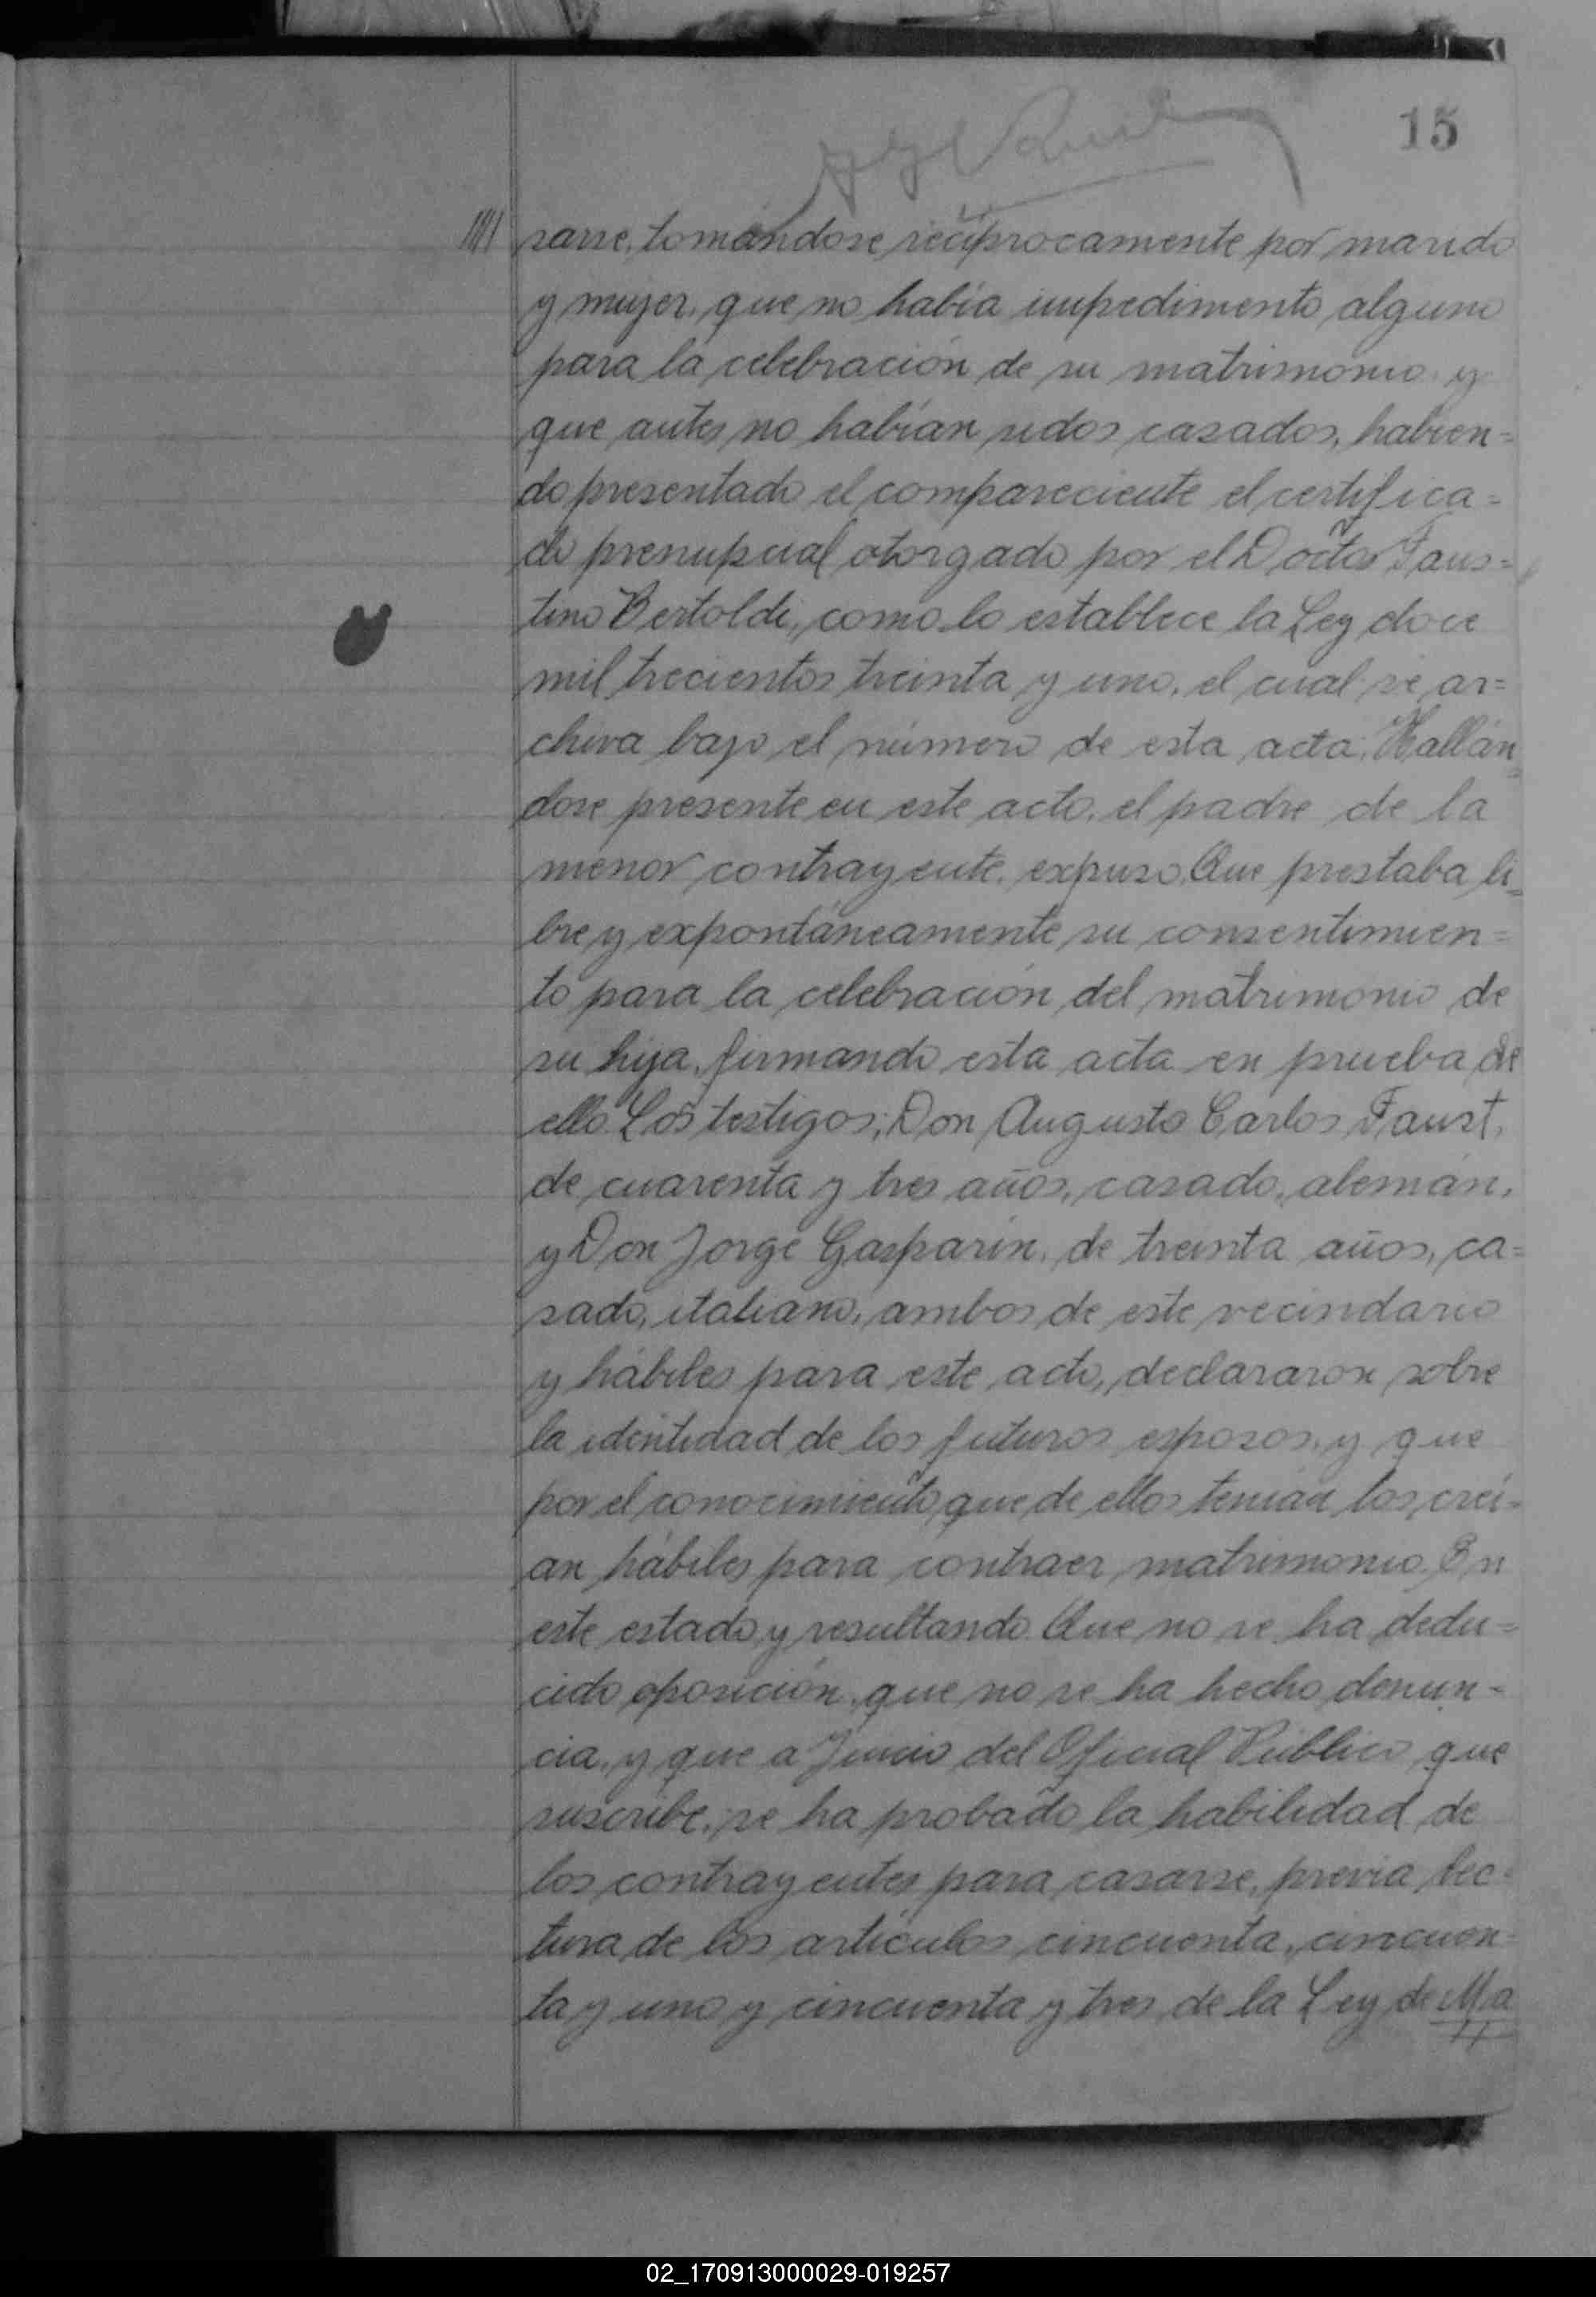 15
//// sarse, tomándose recíprocamente por marido
y mujer, que no había impedimento alguno
para la celebración de su matrimonio y
que antes no habían sidos casados, habien=
do presentado el compareciente el certifica=
do prenupcial otorgado por el Doctor Faus=
tino Bertoldi, como lo establece la Ley doce
mil trecientos treinta y uno, el cual se ar=
chiva bajo el número de esta acta. Hallán=
dose presente en este acto, el padre de la
menor contrayente, expuso. Que prestaba li=
bre y expontáneamente su consentimien=
to para la celebración del matrimonio de
su hija, firmando esta acta en prueba de
ello. Los testigos; Don Augusto Carlos Faust,
de cuarenta y tres años, casado, alemán,
y Don Jorge Gasparin, de treinta años, ca=
sado, italiano, ambos de este vecindario
y hábiles para este acto, declararon sobre
la identidad de los futuros esposos, y que
por el conocimiento que de ellos tenían los creí=
an hábiles para contraer matrimonio. En
este estado y resultando. Que no se ha dedu=
cido oposición, que no se ha hecho denun=
cia, y que a Juicio del Oficial Público que
suscribe, se ha probado la habilidad de
los contrayentes para casarse, previa lec=
tura de los artículos cincuenta, cincuen=
ta y uno y cincuenta y tres de la Ley de Ma
02_170913000029-019257